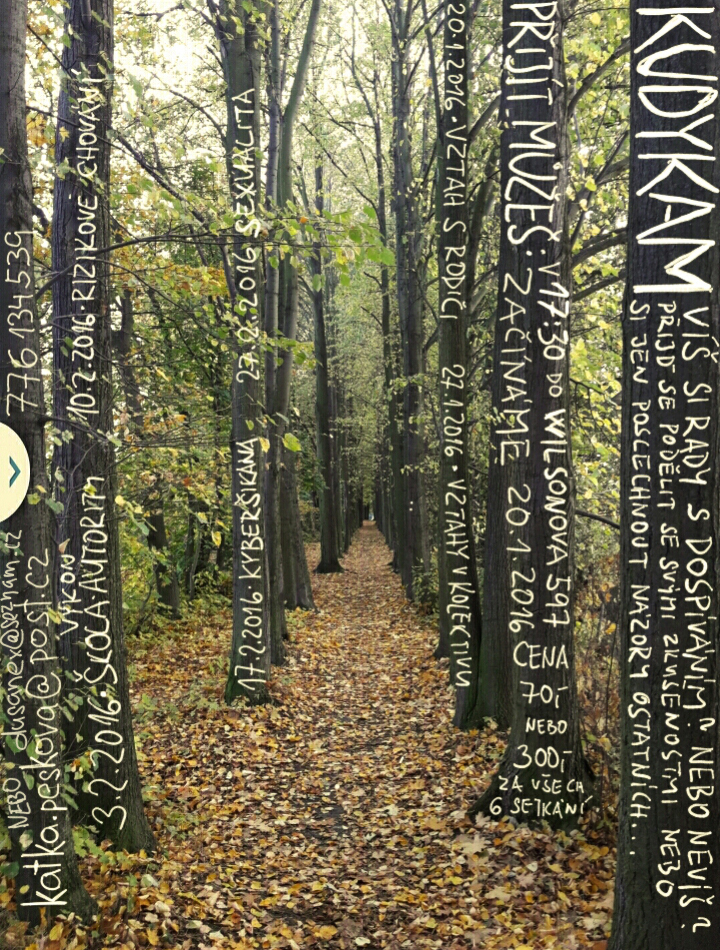 KUDYKAM
VÍŠ SI RADY S DOSPÍVÁNÍM? NEBO NEVÍŠ?
PŘIJĎ SE PODĚLIT SE SVÝMI ZKUŠENOSTMI NEBO
SI JEN POSLECHNOUT NÁZORY OSTATNÍCH...
PŘIJÍT MŮŽEŠ: V 17:30 DO WILSONOVA 597
ZAČÍNÁME 20.1.2016
CENA
70,-
NEBO
300,-
ZA VŠECH
6 SETKÁNÍ
20.1.2016 · VZTAH S RODIČI
27.1.2016 · VZTAHY V KOLEKTIVU
3.2.2016 · ŠKOLA AUTORITY
VÝKON
10.2.2016 · RIZIKOVÉ CHOVÁNÍ
17.2.2016 KYBERŠIKANA
24.2.2016 SEXUALITA
katka.peskova@post.cz 776 134 539
NEBO dusanex@seznam.cz